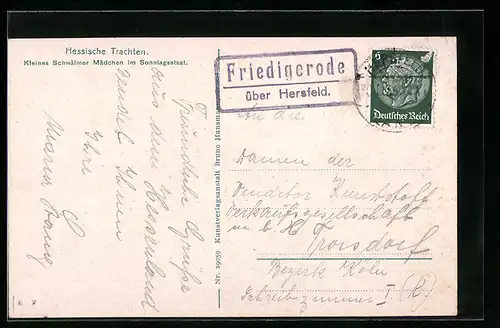 Hessische Trachten.
Kleines Schwälmer Mädchen im Sonntagsstaat.
Freundliche Grüße
aus dem Hessenland
sendet Ihnen
Ihre
Nr. 29659 Kunstverlagsanstalt Bruno Hansmann
Friedigerode
über Hersfeld.
5
Deutsches Reich
An die
Damen der
Venditor Kunststoff-
verkaufsgesellschaft
m b H Troisdorf
Bezirk Köln
Schreibzimmer I